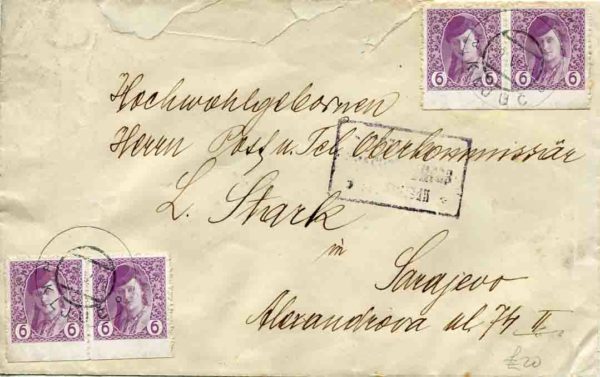 6 6
Hochwohlgebornen
Herrn Post u. Tel. Oberkommissär
L. Stark
in
Sarajevo
Alexandrova ul. 74 II.
6 6
£20